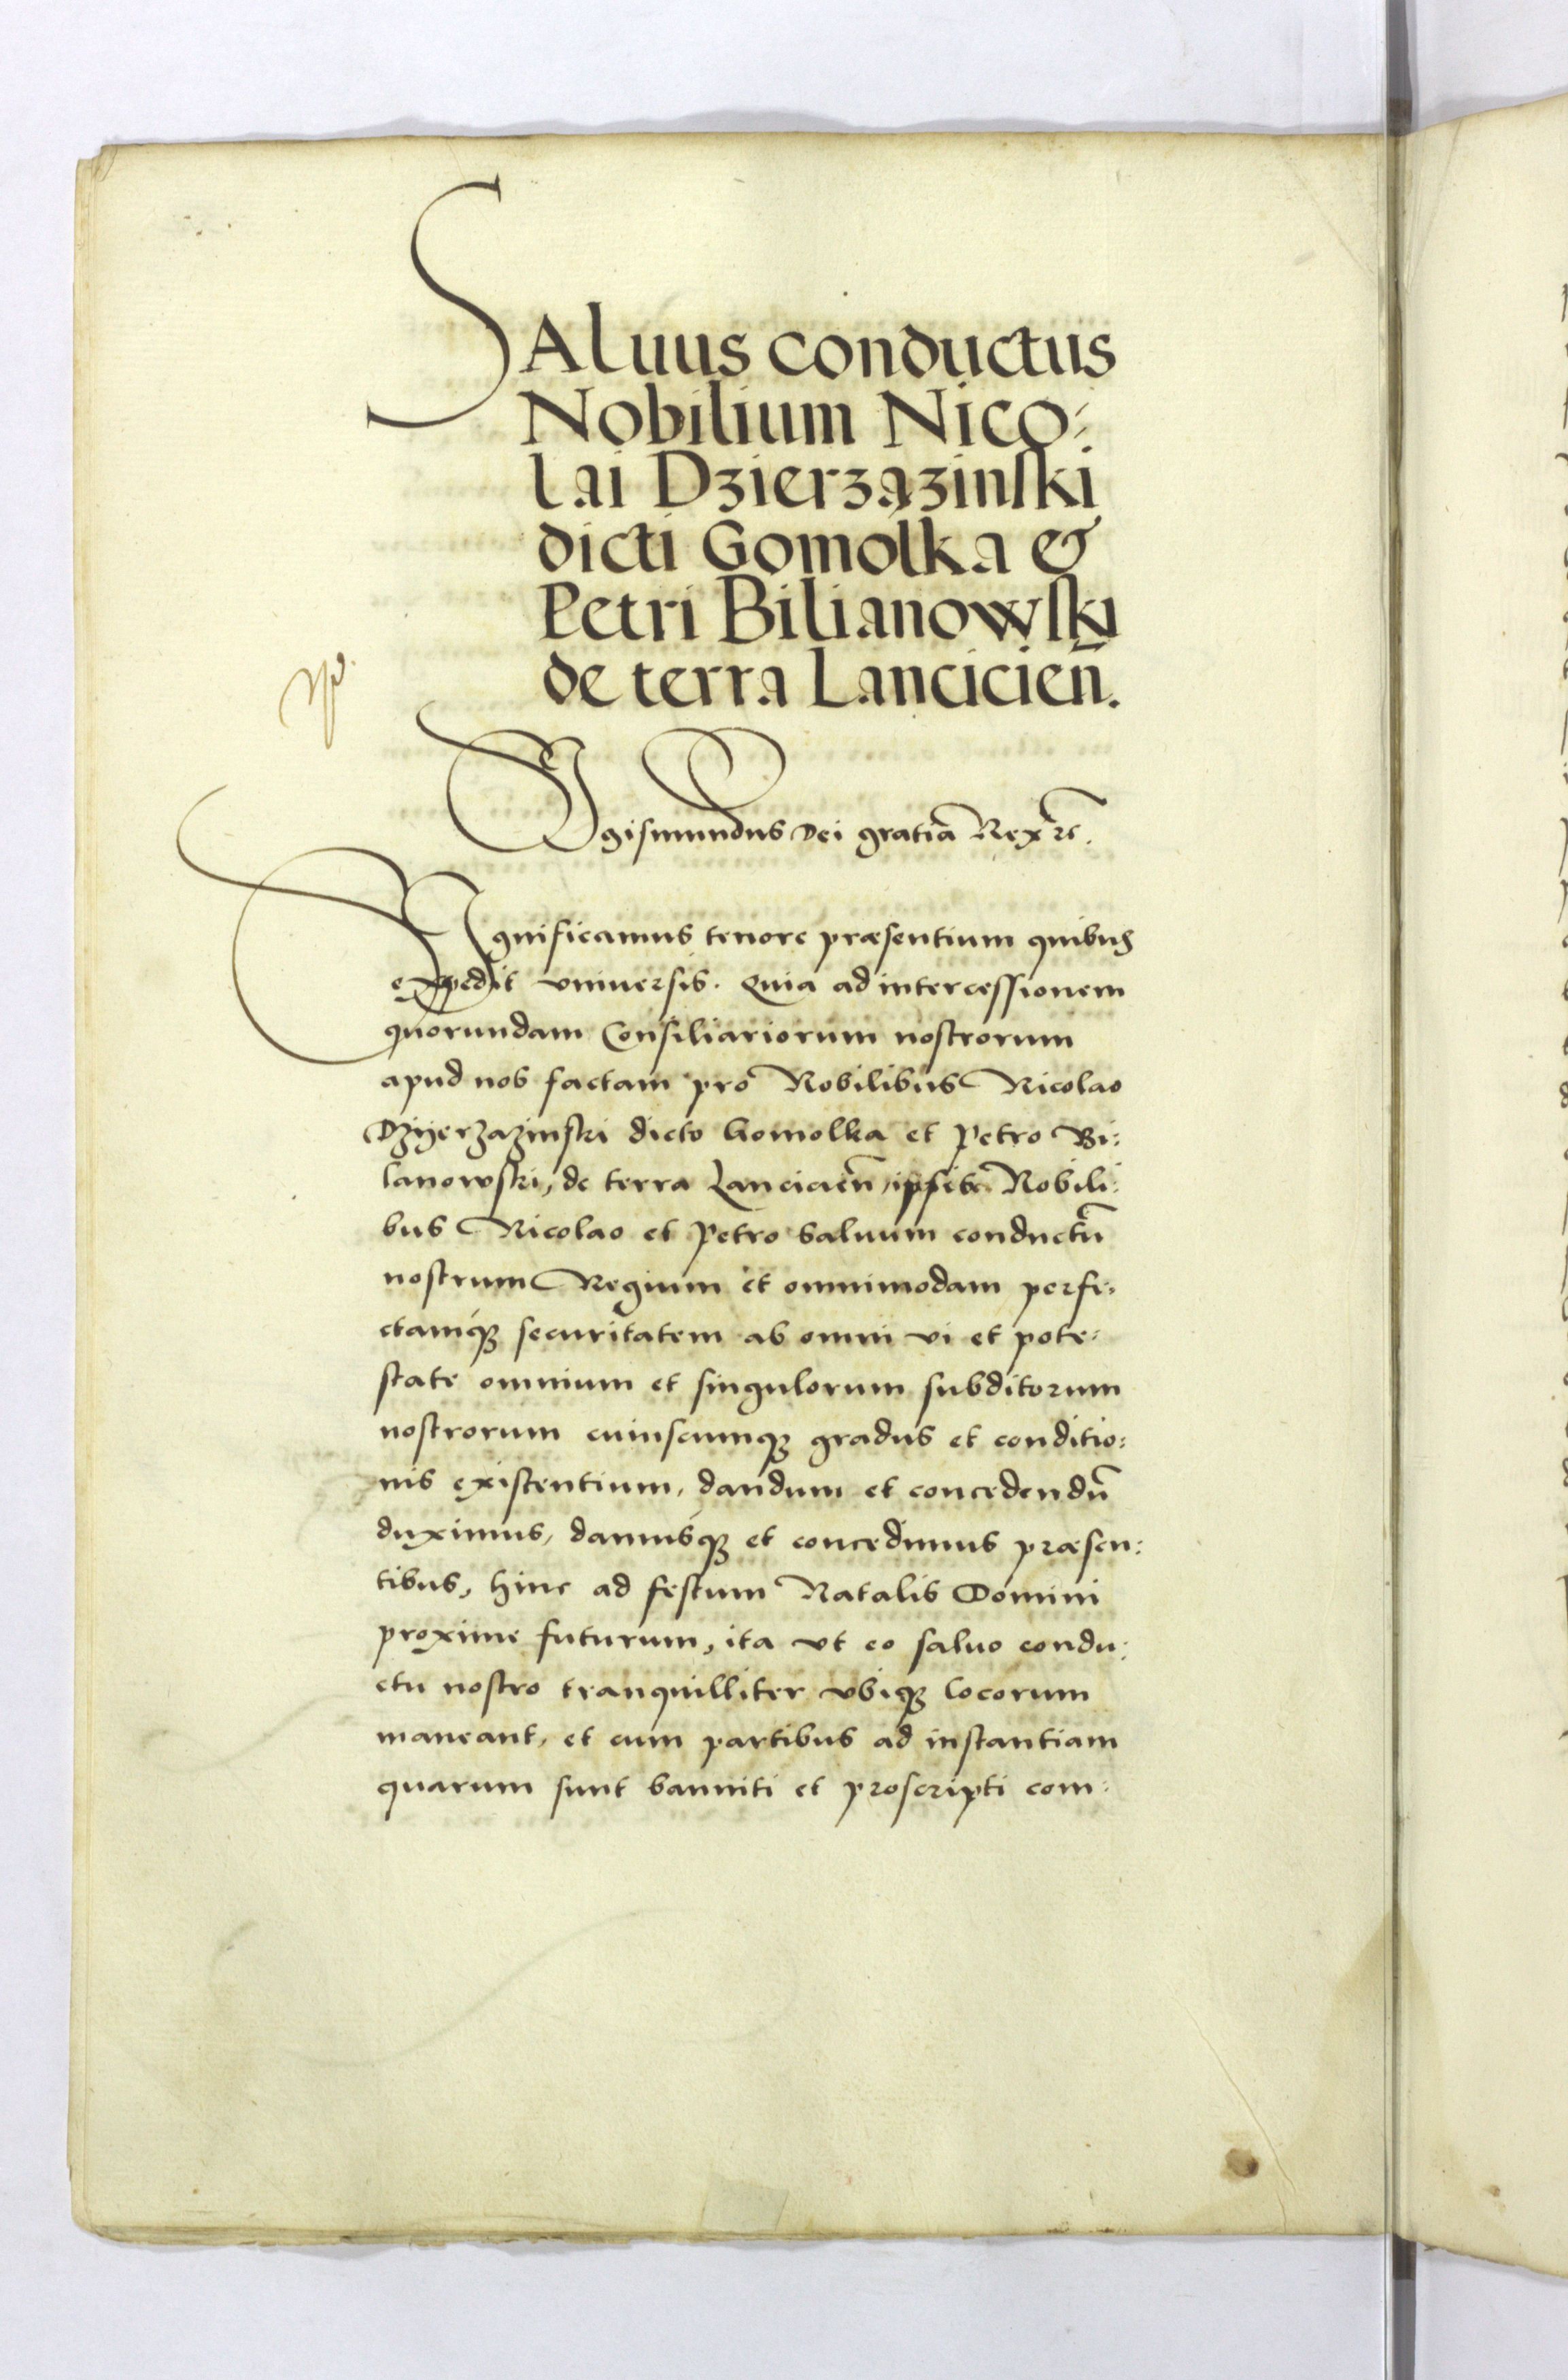 SAluus conductus
Nobilium Nico:
lai Dzierzazinski
dicti Gomolka &
Petri Bilianowski
de terra Lancicien̄.
Sigismundus Dei gratia Rex etc.
Significamus tenore præsentium quibus
expedit vniuersis. Quia ad intercessionem
quorundam Consiliariorum nostrorum
apud nos factam pro Nobilibus Nicolao
Dzyerzazinski dicto Gomolka et Petro Bi:
lanowski, de terra Lancicien̄, ipsis Nobili:
bus Nicolao et Petro saluum conductū
nostrum Regium et omnimodam perfe:
ctamq₃ securitatem ab omni vi et pote:
state omnium et singulorum subditorum
nostrorum cuiuscumq₃ gradus et conditio:
nis existentium, dandum et concedendū
duximus, damusq₃ et concedimus præsen:
tibus, hinc ad festum Natalis Domini
proxime futurum, ita vt eo saluo condu:
ctu nostro tranquilliter vbiq₃ locorum
maneant, et cum partibus ad instantiam
quarum sunt banniti et proscripti com: